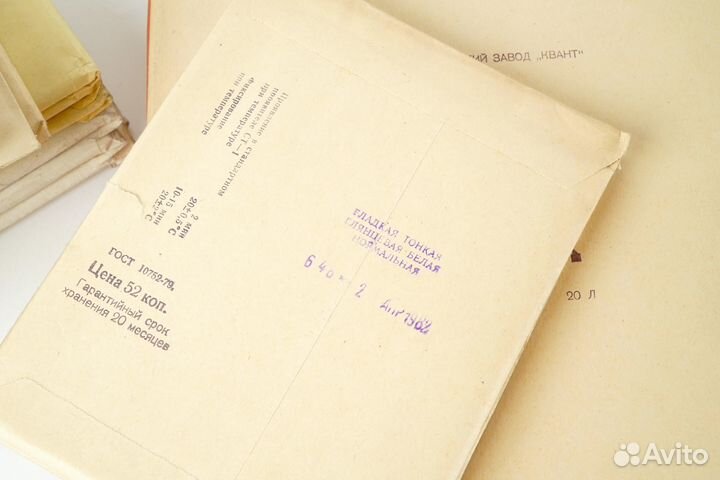 ИЙ ЗАВОД „КВАНТ"
20 Л
Проявление в стандартном
проявителе СТ—1
при температуре
Фиксирование
при температуре
2 мин
20±0,5°С
10-15 мин
20±2°С
ГОСТ 10752-79.
Цена 52 коп.
Гарантийный срок
хранения 20 месяцев
ГЛАДКАЯ ТОНКАЯ
ГЛЯНЦЕВАЯ БЕЛАЯ
НОРМАЛЬНАЯ
640 2 Апр 1982
Avito